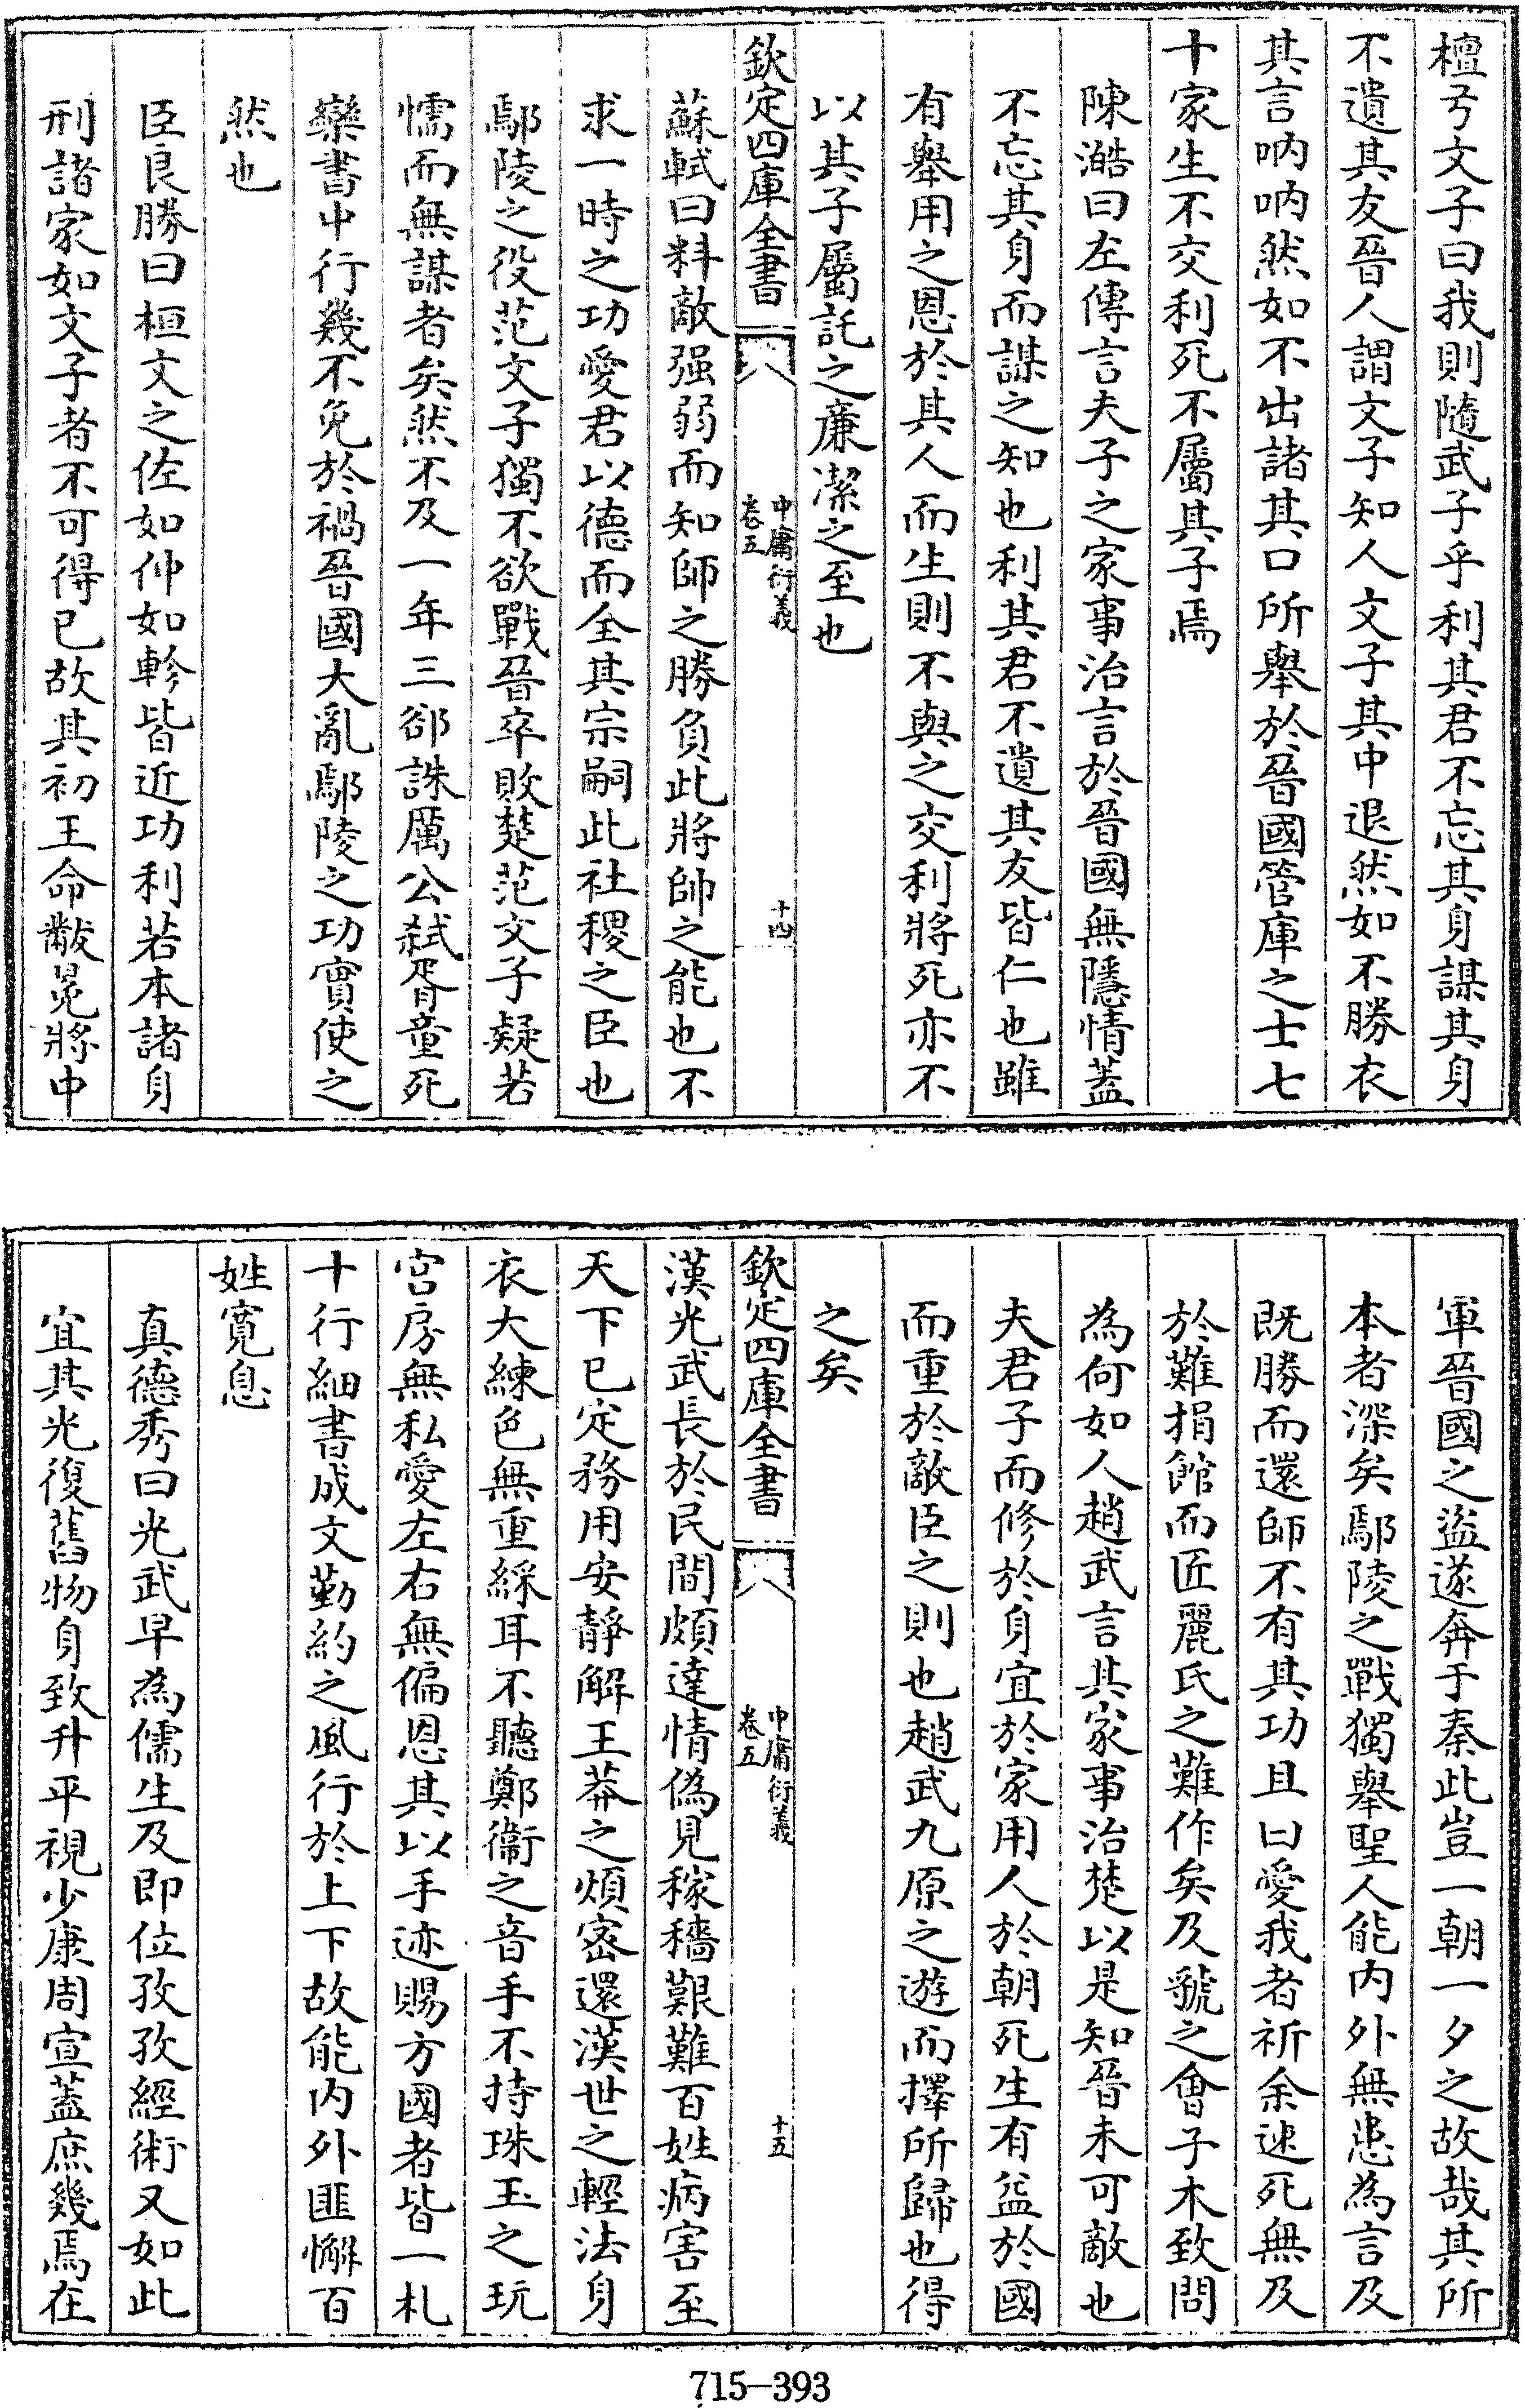 檀弓文子曰我則隨武子乎利其君不忘其身謀其身
不遺其友晉人謂文子知人文子其中退然如不勝衣
其言吶吶然如不出諸其口所舉於晉國管庫之士七
十家生不交利死不屬其子焉
陳澔曰左傳言夫子之家事治言於晉國無隱情蓋
不忘其身而謀之知也利其君不遺其友皆仁也雖
有舉用之恩於其人而生則不與之交利將死亦不
以其子屬託之廉潔之至也
欽定四庫全書
中庸衍義
卷五
十四
蘇軾曰料敵强弱而知師之勝負此將帥之能也不
求一時之功愛君以德而全其宗嗣此社稷之臣也
鄢陵之役范文子獨不欲戰晉卒敗楚范文子疑若
懦而無謀者矣然不及一年三郤誅厲公弑胥童死
欒書中行幾不免於禍晉國大亂鄢陵之功實使之
然也
臣良勝曰桓文之佐如仲如軫皆近功利若本諸身
刑諸家如文子者不可得已故其初王命黻冕將中
軍晉國之盜遂奔于秦此豈一朝一夕之故哉其所
本者深矣鄢陵之戰獨舉聖人能内外無患為言及
既勝而還師不有其功且曰愛我者祈余速死無及
於難捐館而匠麗氏之難作矣及虢之會子木致問
為何如人趙武言其家事治楚以是知晉未可敵也
夫君子而修於身宜於家用人於朝死生有益於國
而重於敵臣之則也趙武九原之遊而擇所歸也得
之矣
欽定四庫全書
中庸衍義
卷五
十五
漢光武長於民間頗達情偽見稼穡艱難百姓病害至
天下已定務用安靜解王莽之煩密還漢世之輕法身
衣大練色無重綵耳不聽鄭衞之音手不持珠玉之玩
宫房無私愛左右無偏恩其以手迹賜方國者皆一札
十行細書成文勤約之風行於上下故能内外匪懈百
姓寛息
真德秀曰光武早為儒生及即位孜孜經術又如此
宜其光復舊物身致升平視少康周宣蓋庶幾焉在
715-393